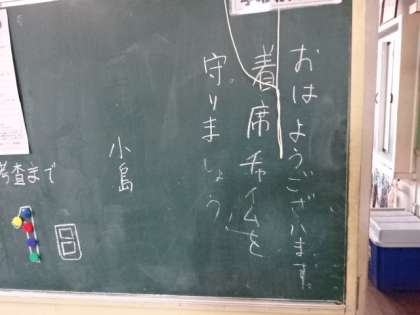 おはようございます
着席チャイムを
守りましょう
小島
考査まで
日